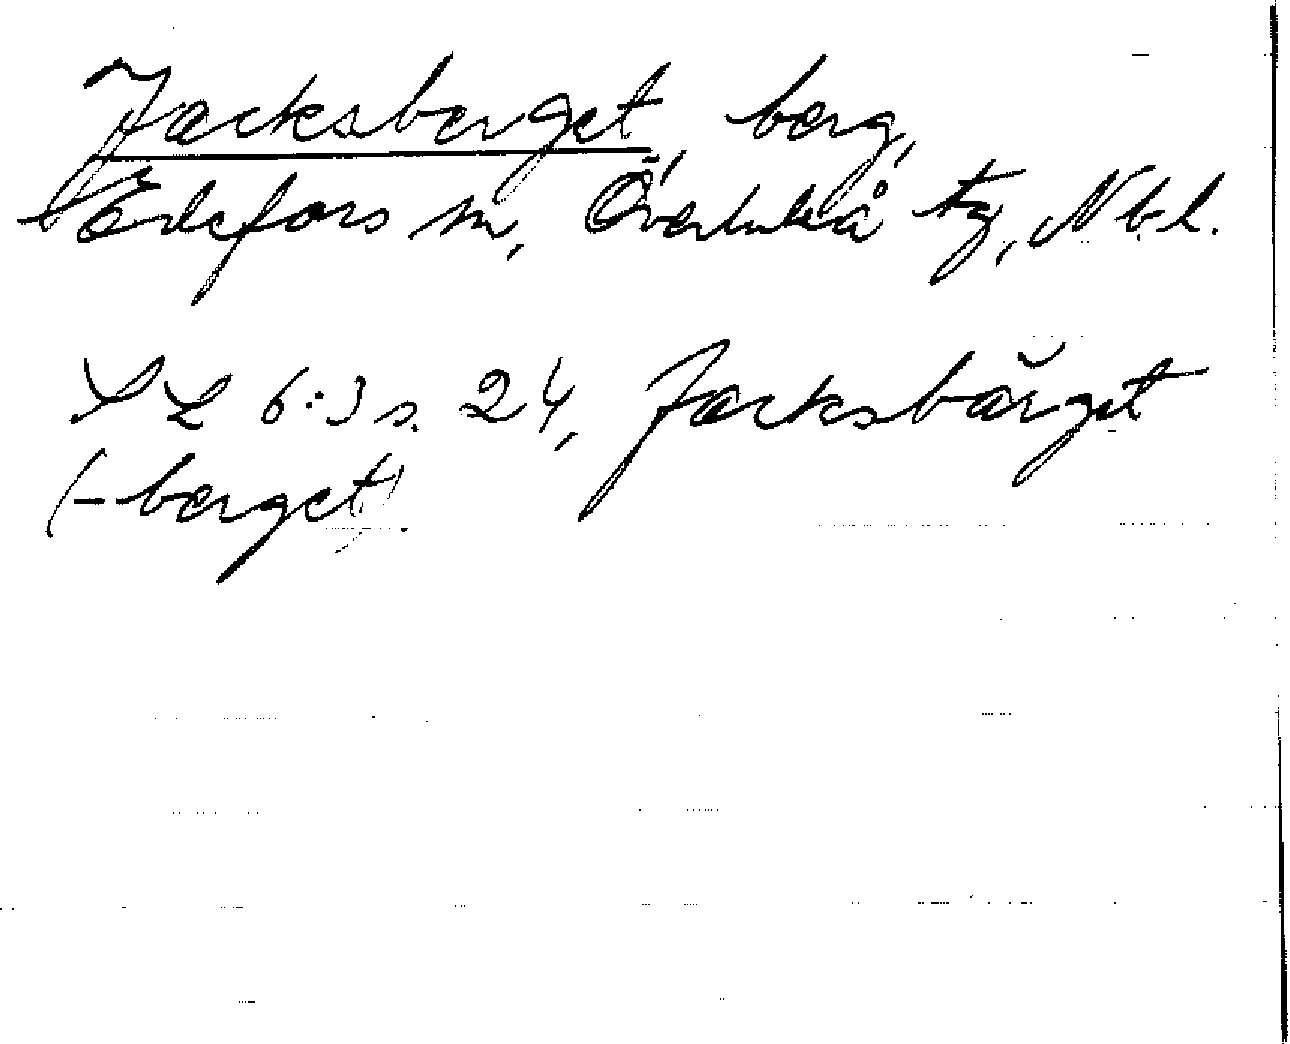 Jacksberget, berg,
Edefors sn, Överluleå tg, Nb. l.
SL 6:3 s. 24, Jacksbärget
(-berget).